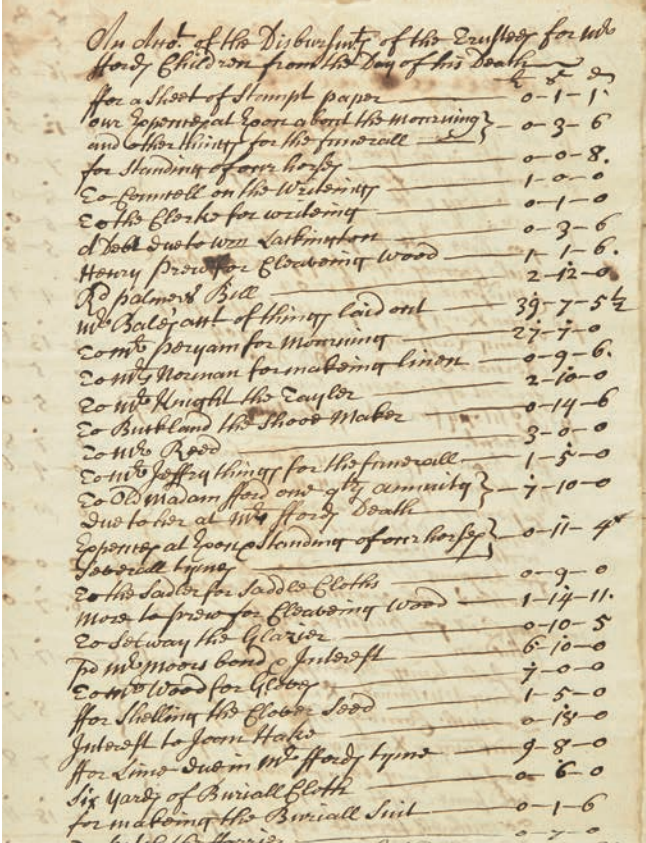 An Acot. of the Disbursmts. of the Trustees for Mr
ffords Children from the Day of his Death
£ s d
ffor a Sheet of Stampt paper 0-1-1
our Expences at Exon about the mourning
and other things for the funerall 0-3-6
for Standing of our horses 0-0-8.
To Councell on the Writeings 1-0-0
To the Clerke for writeing 0-1-0
A Debt due to Wm Lackington 0-3-6
Henry Prew for Cleaveing Wood 1-1-6.
Rd palmers Bill 2-12-0
Mr Bales acct of things laid out 39-7-5½
To Mr Peryam for Mourning 27-7-0
To Mrs Norman for makeing linen 0-9-6.
To Mr Knight the Tayler 2-10-0
To Buckland the Shooe Maker 0-14-6
To Mr Reed 3-0-0
To Mr Jeffry things for the funerall 1-5-0
To Old Madam fford one qtly annuity
due to her at Mr ffords Death 7-10-0
Expences at Exon & Standing of our horses
Severall tymes 0-11-4
To the Sadler for Saddle Cloths 0-9-0
More to Prew for Cleaveing Wood 1-14-11.
To Setway the Glazier 0-10-5
pd Mr Moors bond & Interest 6-10-0
To Mr Wood for Gloves 7-0-0
ffor Shelling the Clover Seed 1-5-0
Interest to Joan Hake 0-18-0
ffor Lime due in Mr ffords tyme 9-8-0
Six Yards of Buriall Cloth 0-6-0
for makeing the Buriall Suit 0-1-6
the ffarrier 0-7-0